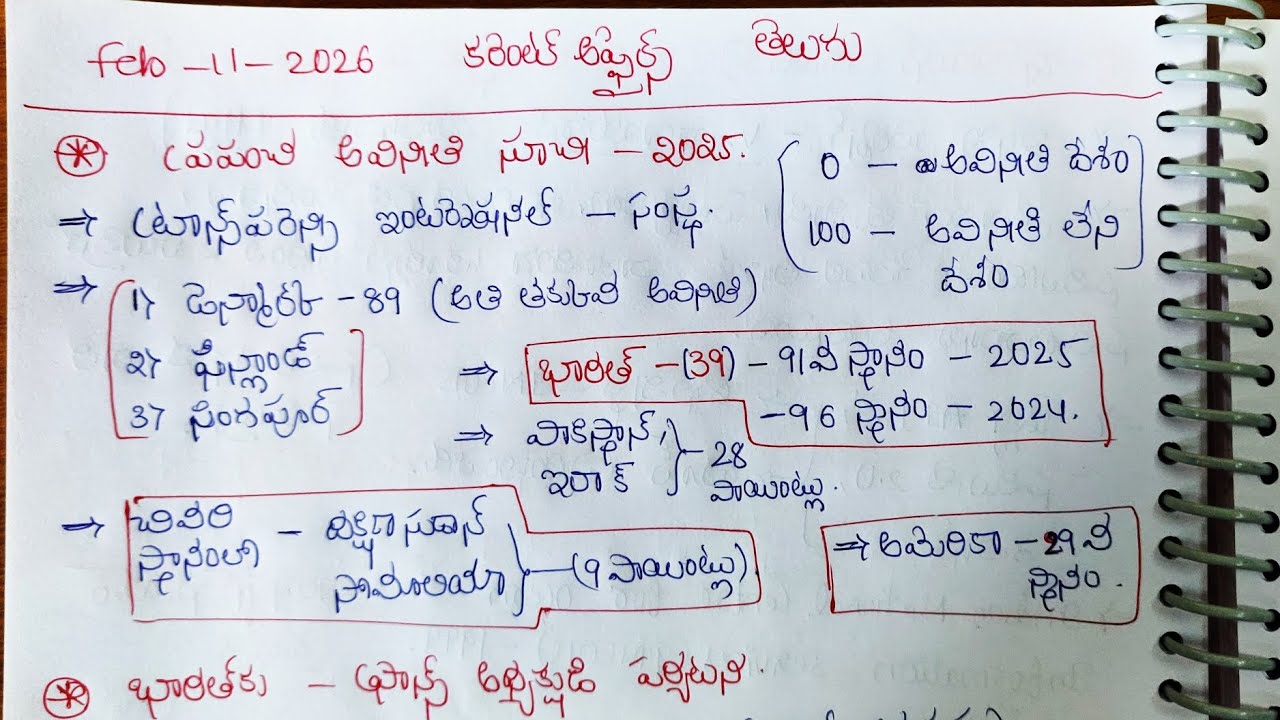 Feb - 11 - 2026 కరెంట్ అఫైర్స్ తెలుగు
ప్రపంచ అవినీతి సూచి - 2025.
⇒ ట్రాన్స్‌పరెన్సి ఇంటర్నేషనల్ - సంస్థ.
0 - అవినీతి దేశం
100 - అవినీతి లేని
దేశం
⇒ 1) డెన్మార్క్ - 89 (అతి తక్కువ అవినీతి)
2) ఫిన్లాండ్
3) సింగపూర్
⇒ భారత్ - (39) - 91వ స్థానం - 2025
- 96 స్థానం - 2024.
⇒ పాకిస్థాన్,
ఇరాక్ } - 28
పాయింట్లు.
⇒ చివరి
స్థానంలో - దక్షిణ సుడాన్
సోమాలియా } - (9 పాయింట్లు)
⇒ అమెరికా - 29 వ
స్థానం.
భారత్‌కు - ఫ్రాన్స్ అధ్యక్షుడి పర్యటన.